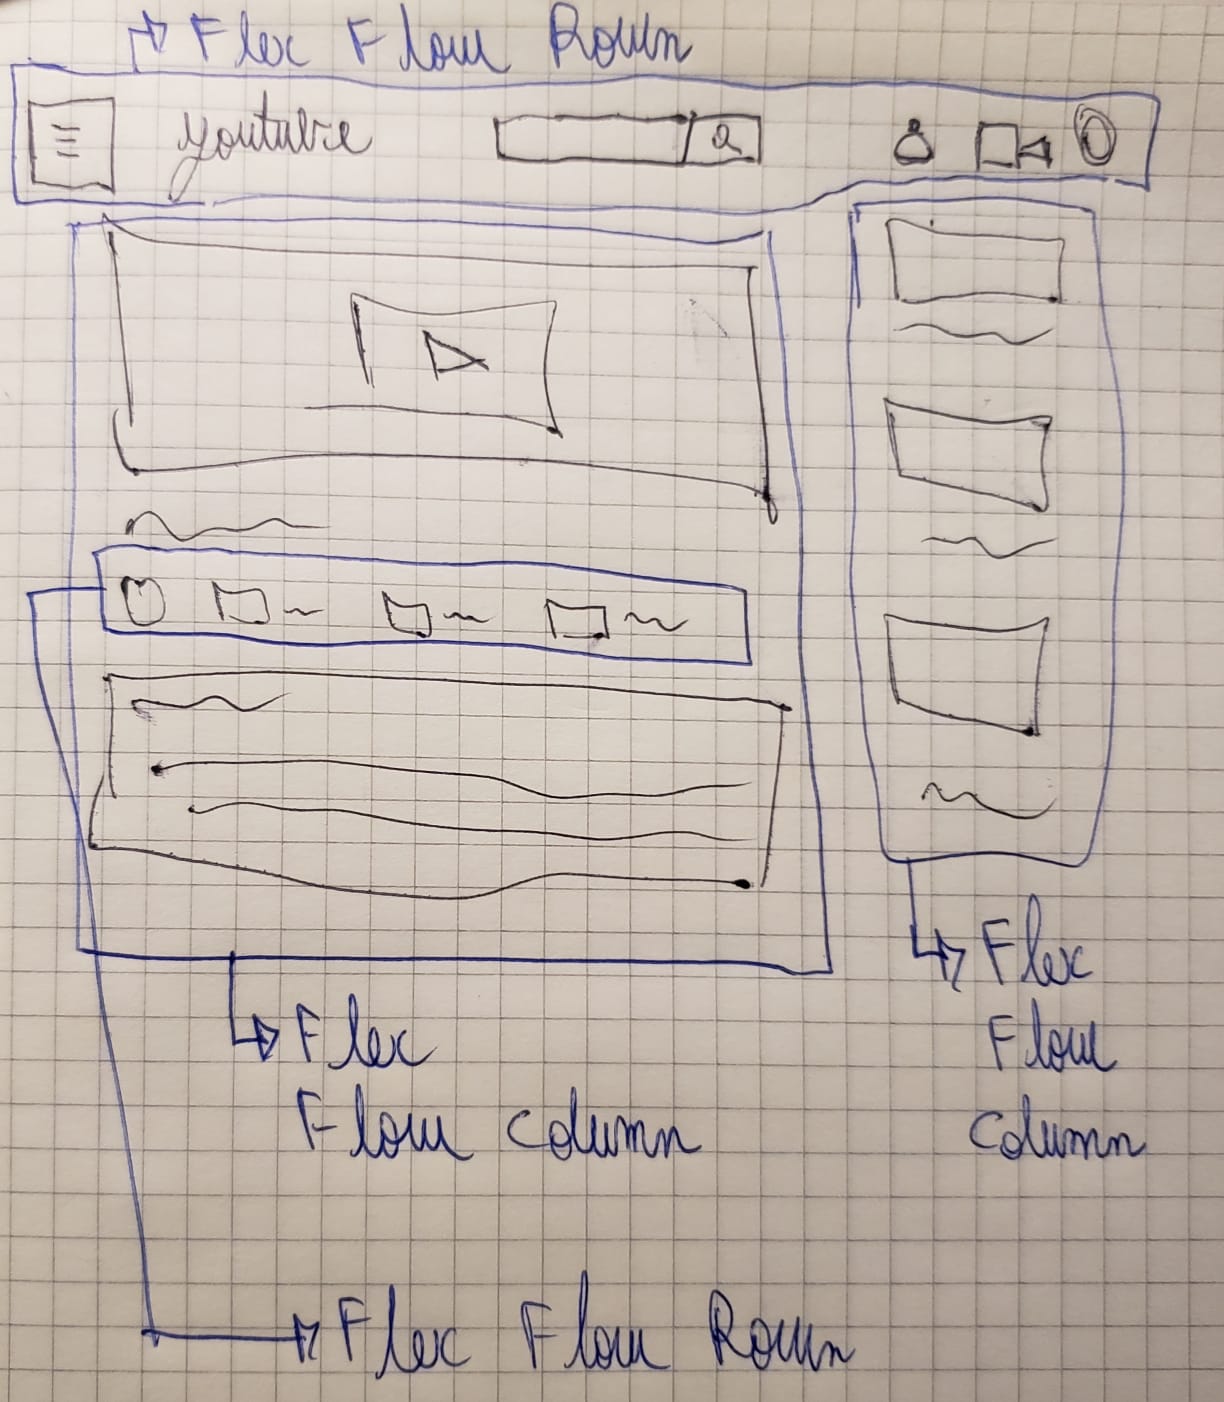 Flex Flow Rown
youtube
Flex
Flow
column
Flex
Flow column
Flex Flow Rown